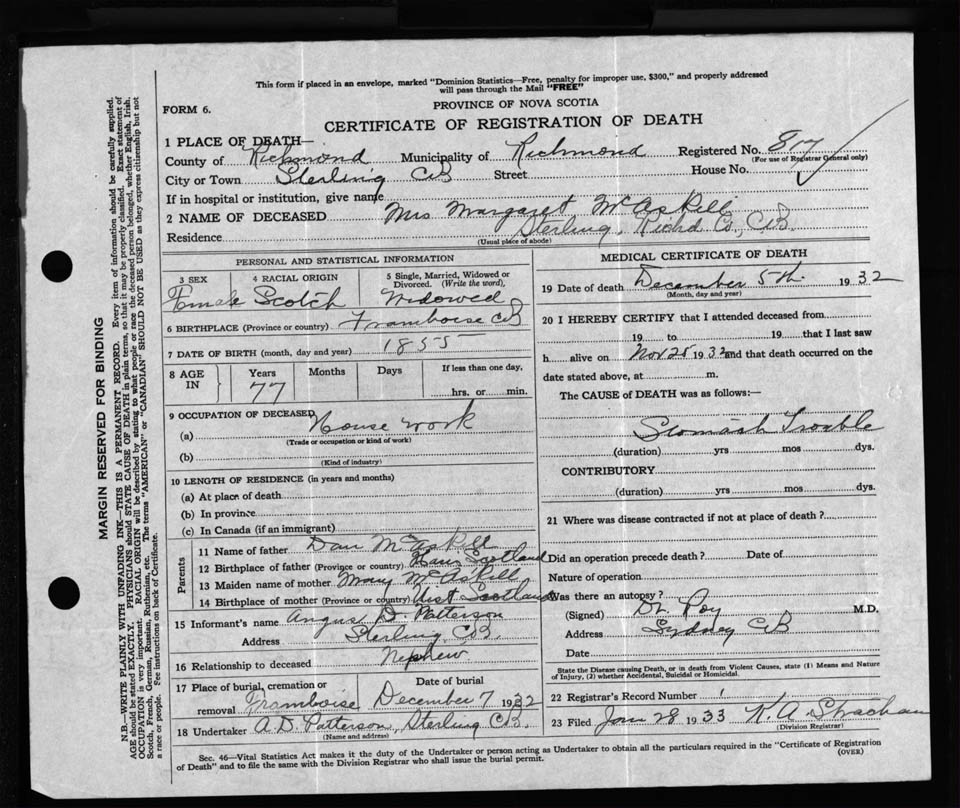 This form if placed in an envelope, marked "Dominion Statistics—Free, penalty for improper use, $300," and properly addressed
will pass through the Mail "FREE"
FORM 6.
PROVINCE OF NOVA SCOTIA
CERTIFICATE OF REGISTRATION OF DEATH
1 PLACE OF DEATH—
County of Richmond Municipality of Richmond Registered No. 817
(For use of Registrar General only)
City or Town Sterling CB Street House No.
If in hospital or institution, give name
2 NAME OF DECEASED Mrs Margaret McAskill
Residence Sterling, Richd Co., CB.
(Usual place of abode)
PERSONAL AND STATISTICAL INFORMATION
3 SEX
Female
4 RACIAL ORIGIN
Scotch
5 Single, Married, Widowed or
Divorced. (Write the word),
Widowed
6 BIRTHPLACE (Province or country) Framboise CB
7 DATE OF BIRTH (month, day and year) 1855
8 AGE
IN
Years
77
Months
Days
If less than one day,
hrs. or min.
9 OCCUPATION OF DECEASED
(a) House work
(Trade or occupation or kind of work)
(b)
(Kind of industry)
10 LENGTH OF RESIDENCE (in years and months)
(a) At place of death
(b) In province
(c) In Canada (if an immigrant)
Parents
11 Name of father Dan McAskill
12 Birthplace of father (Province or country) Scotland
13 Maiden name of mother Mary McAskill
14 Birthplace of mother (Province or country) Uist Scotland
15 Informant's name Angus D. Patterson
Address Sterling CB.
16 Relationship to deceased Nephew
17 Place of burial, cremation or
removal Framboise
Date of burial
December 7 1932
18 Undertaker A.D. Patterson, Sterling CB.
(Name and address)
MEDICAL CERTIFICATE OF DEATH
19 Date of death December 5th 1932
(Month, day and year)
20 I HEREBY CERTIFY that I attended deceased from
19 to 19 that I last saw
h alive on Nov 25 1932 and that death occurred on the
date stated above, at m.
The CAUSE of DEATH was as follows:
Stomach Trouble
(duration) yrs mos dys.
CONTRIBUTORY
(duration) yrs mos dys.
21 Where was disease contracted if not at place of death?
Did an operation precede death? Date of
Nature of operation
Was there an autopsy?
(Signed) Dr. Roy M.D.
Address Sydney CB
Date
State the Disease causing Death, or in Death from Violent Causes, state (1) Means and Nature
of Injury, (2) whether Accidental, Suicidal or Homicidal.
22 Registrar's Record Number 1
23 Filed Jan 28 1933 K. A. Strachan
(Division Registrar)
Sec. 46—Vital Statistics Act makes it the duty of the Undertaker or person acting as Undertaker to obtain all the particulars required in the "Certificate of Registration
of Death" and to file the same with the Division Registrar who shall issue the burial permit.
(OVER)
MARGIN RESERVED FOR BINDING
N.B.—WRITE PLAINLY WITH UNFADING INK—THIS IS A PERMANENT RECORD. Every item of information should be carefully supplied.
AGE should be stated EXACTLY. PHYSICIANS should STATE CAUSE OF DEATH in plain terms, so that it may be properly classified. Exact statement of
OCCUPATION is very important. RACIAL ORIGIN will be described by stating to what people or race the deceased person belonged, whether English, Irish,
Scotch, French, German, Russian, Ruthenian, etc. The terms "AMERICAN" or "CANADIAN" SHOULD NOT BE USED as they express citizenship but not
a race or people. See instructions on back of Certificate.